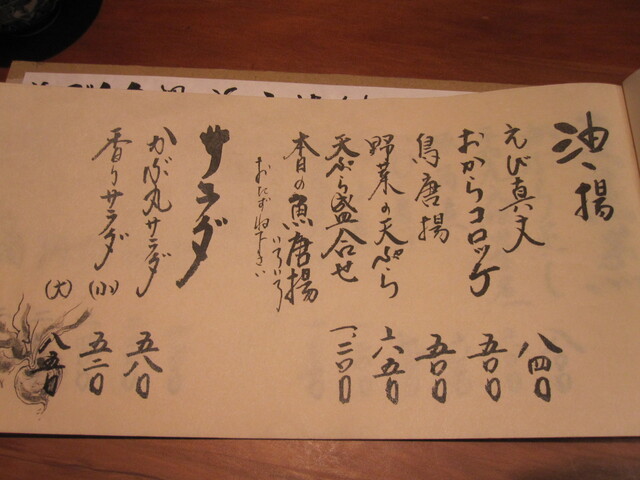 油揚
えび真丈 八四〇
おからコロッケ 五〇〇
鳥唐揚 五〇〇
野菜の天ぷら 六五〇
天ぷら盛合せ 一、二〇〇
本日の魚唐揚 いろいろ
おたずね下さい
サラダ
かぶ丸サラダ 五八〇
香りサラダ (小) 五二〇
(大) 八五〇